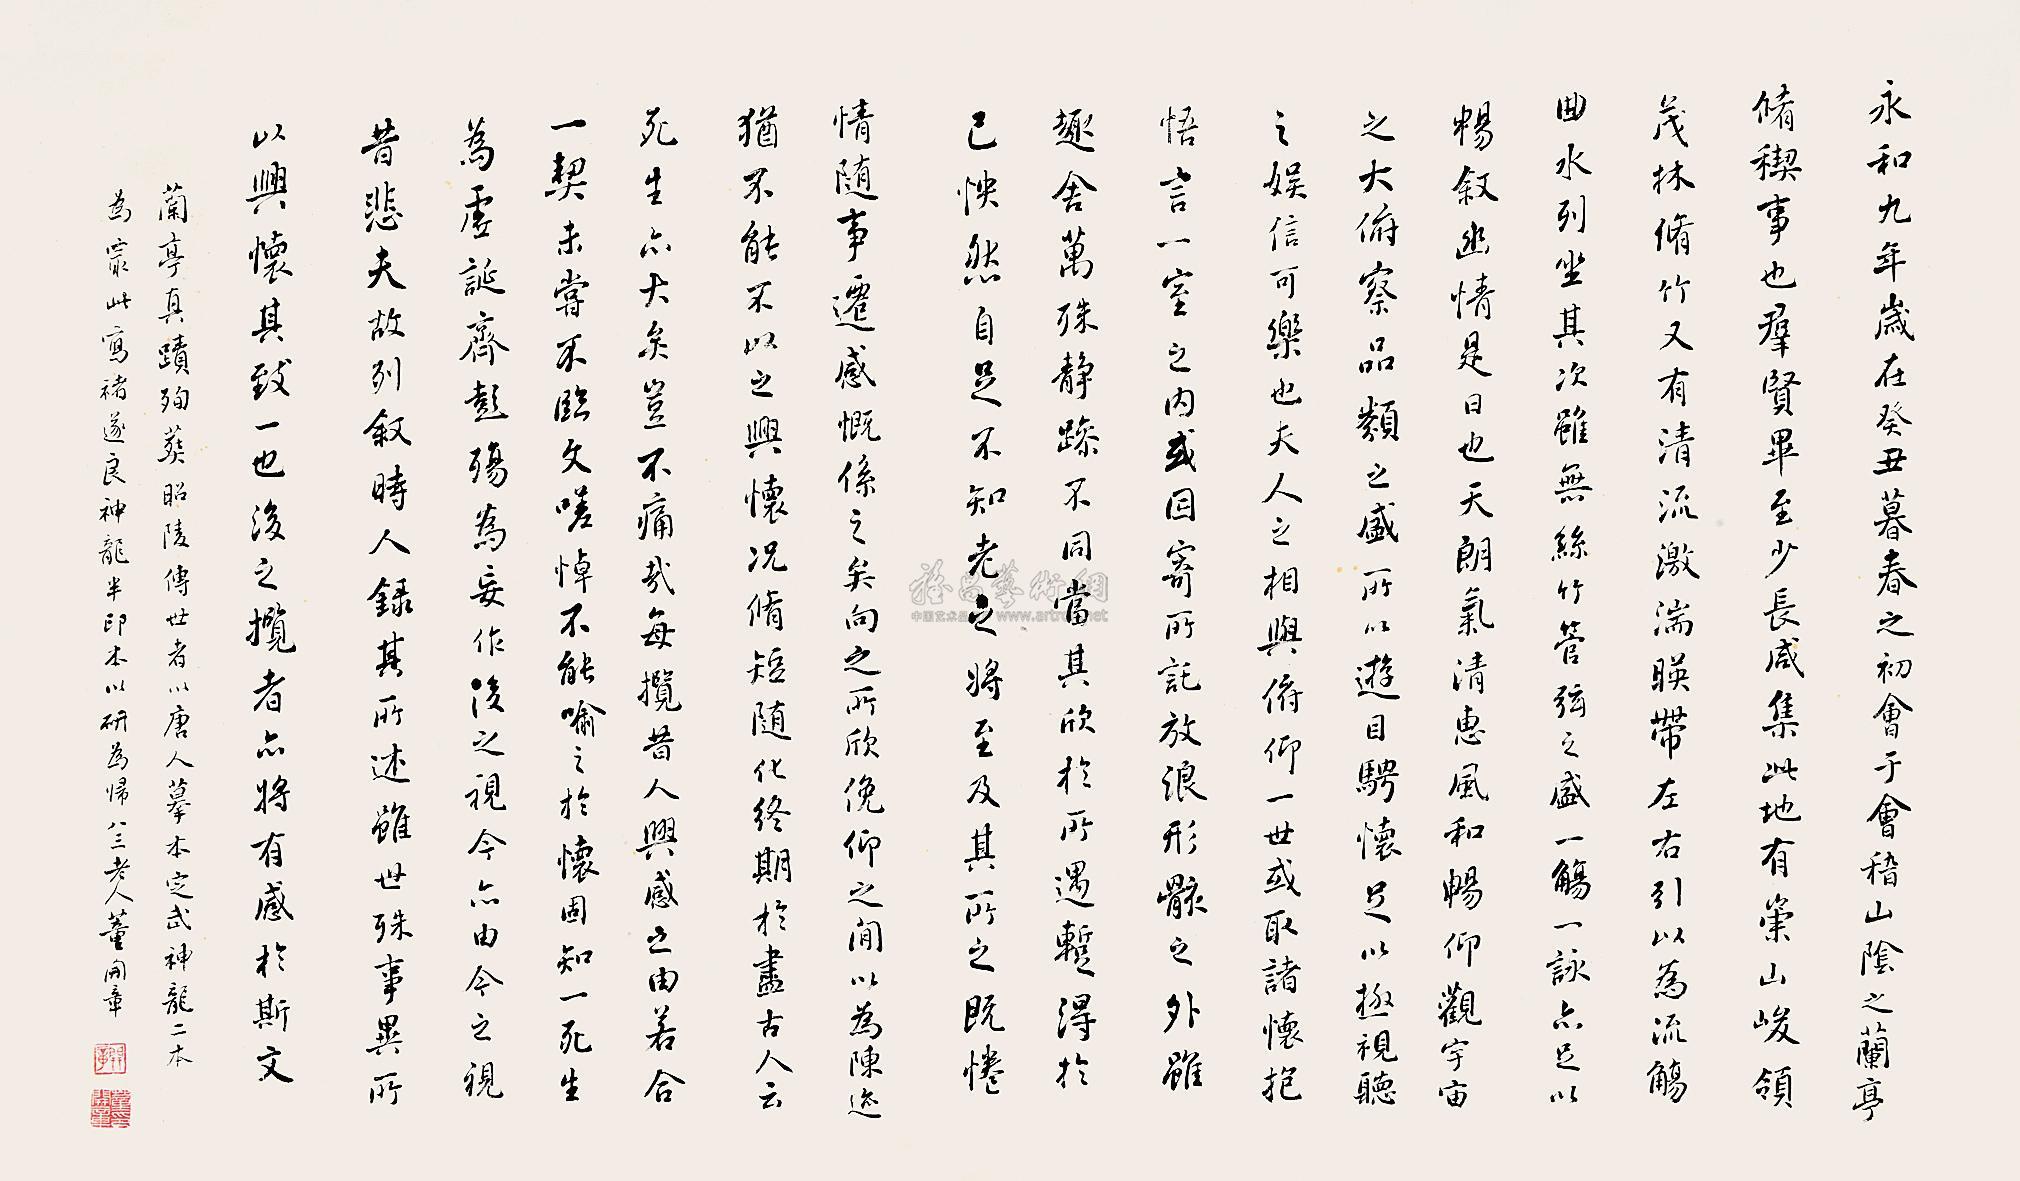 永和九年歲在癸丑暮春之初會于會稽山陰之蘭亭
脩稧事也羣賢畢至少長咸集此地有崇山峻領
茂林脩竹又有清流激湍暎帶左右引以為流觴
曲水列坐其次雖無絲竹管弦之盛一觴一詠亦足以
暢叙幽情是日也天朗氣清惠風和暢仰觀宇宙
之大俯察品類之盛所以遊目騁懷足以極視聽
之娛信可樂也夫人之相與俯仰一世或取諸懷抱
悟言一室之内或因寄所託放浪形骸之外雖
趣舍萬殊静躁不同當其欣於所遇暫得於
己怏然自足不知老之將至及其所之既惓
情随事遷感慨係之矣向之所欣俛仰之閒以為陳迹
猶不能不以之興懷况脩短随化終期於盡古人云
死生亦大矣豈不痛哉每攬昔人興感之由若合
一契未嘗不臨文嗟悼不能喻之於懷固知一死生
為虛誕齊彭殤為妄作後之視今亦由今之視
昔悲夫故列叙時人録其所述雖世殊事異所
以興懷其致一也後之攬者亦將有感於斯文
蘭亭真蹟殉葬昭陵傳世者以唐人摹本定武神龍二本
為最此寫褚遂良神龍半印本以研為歸八三老人董開章
中国艺术品
www.artron.net